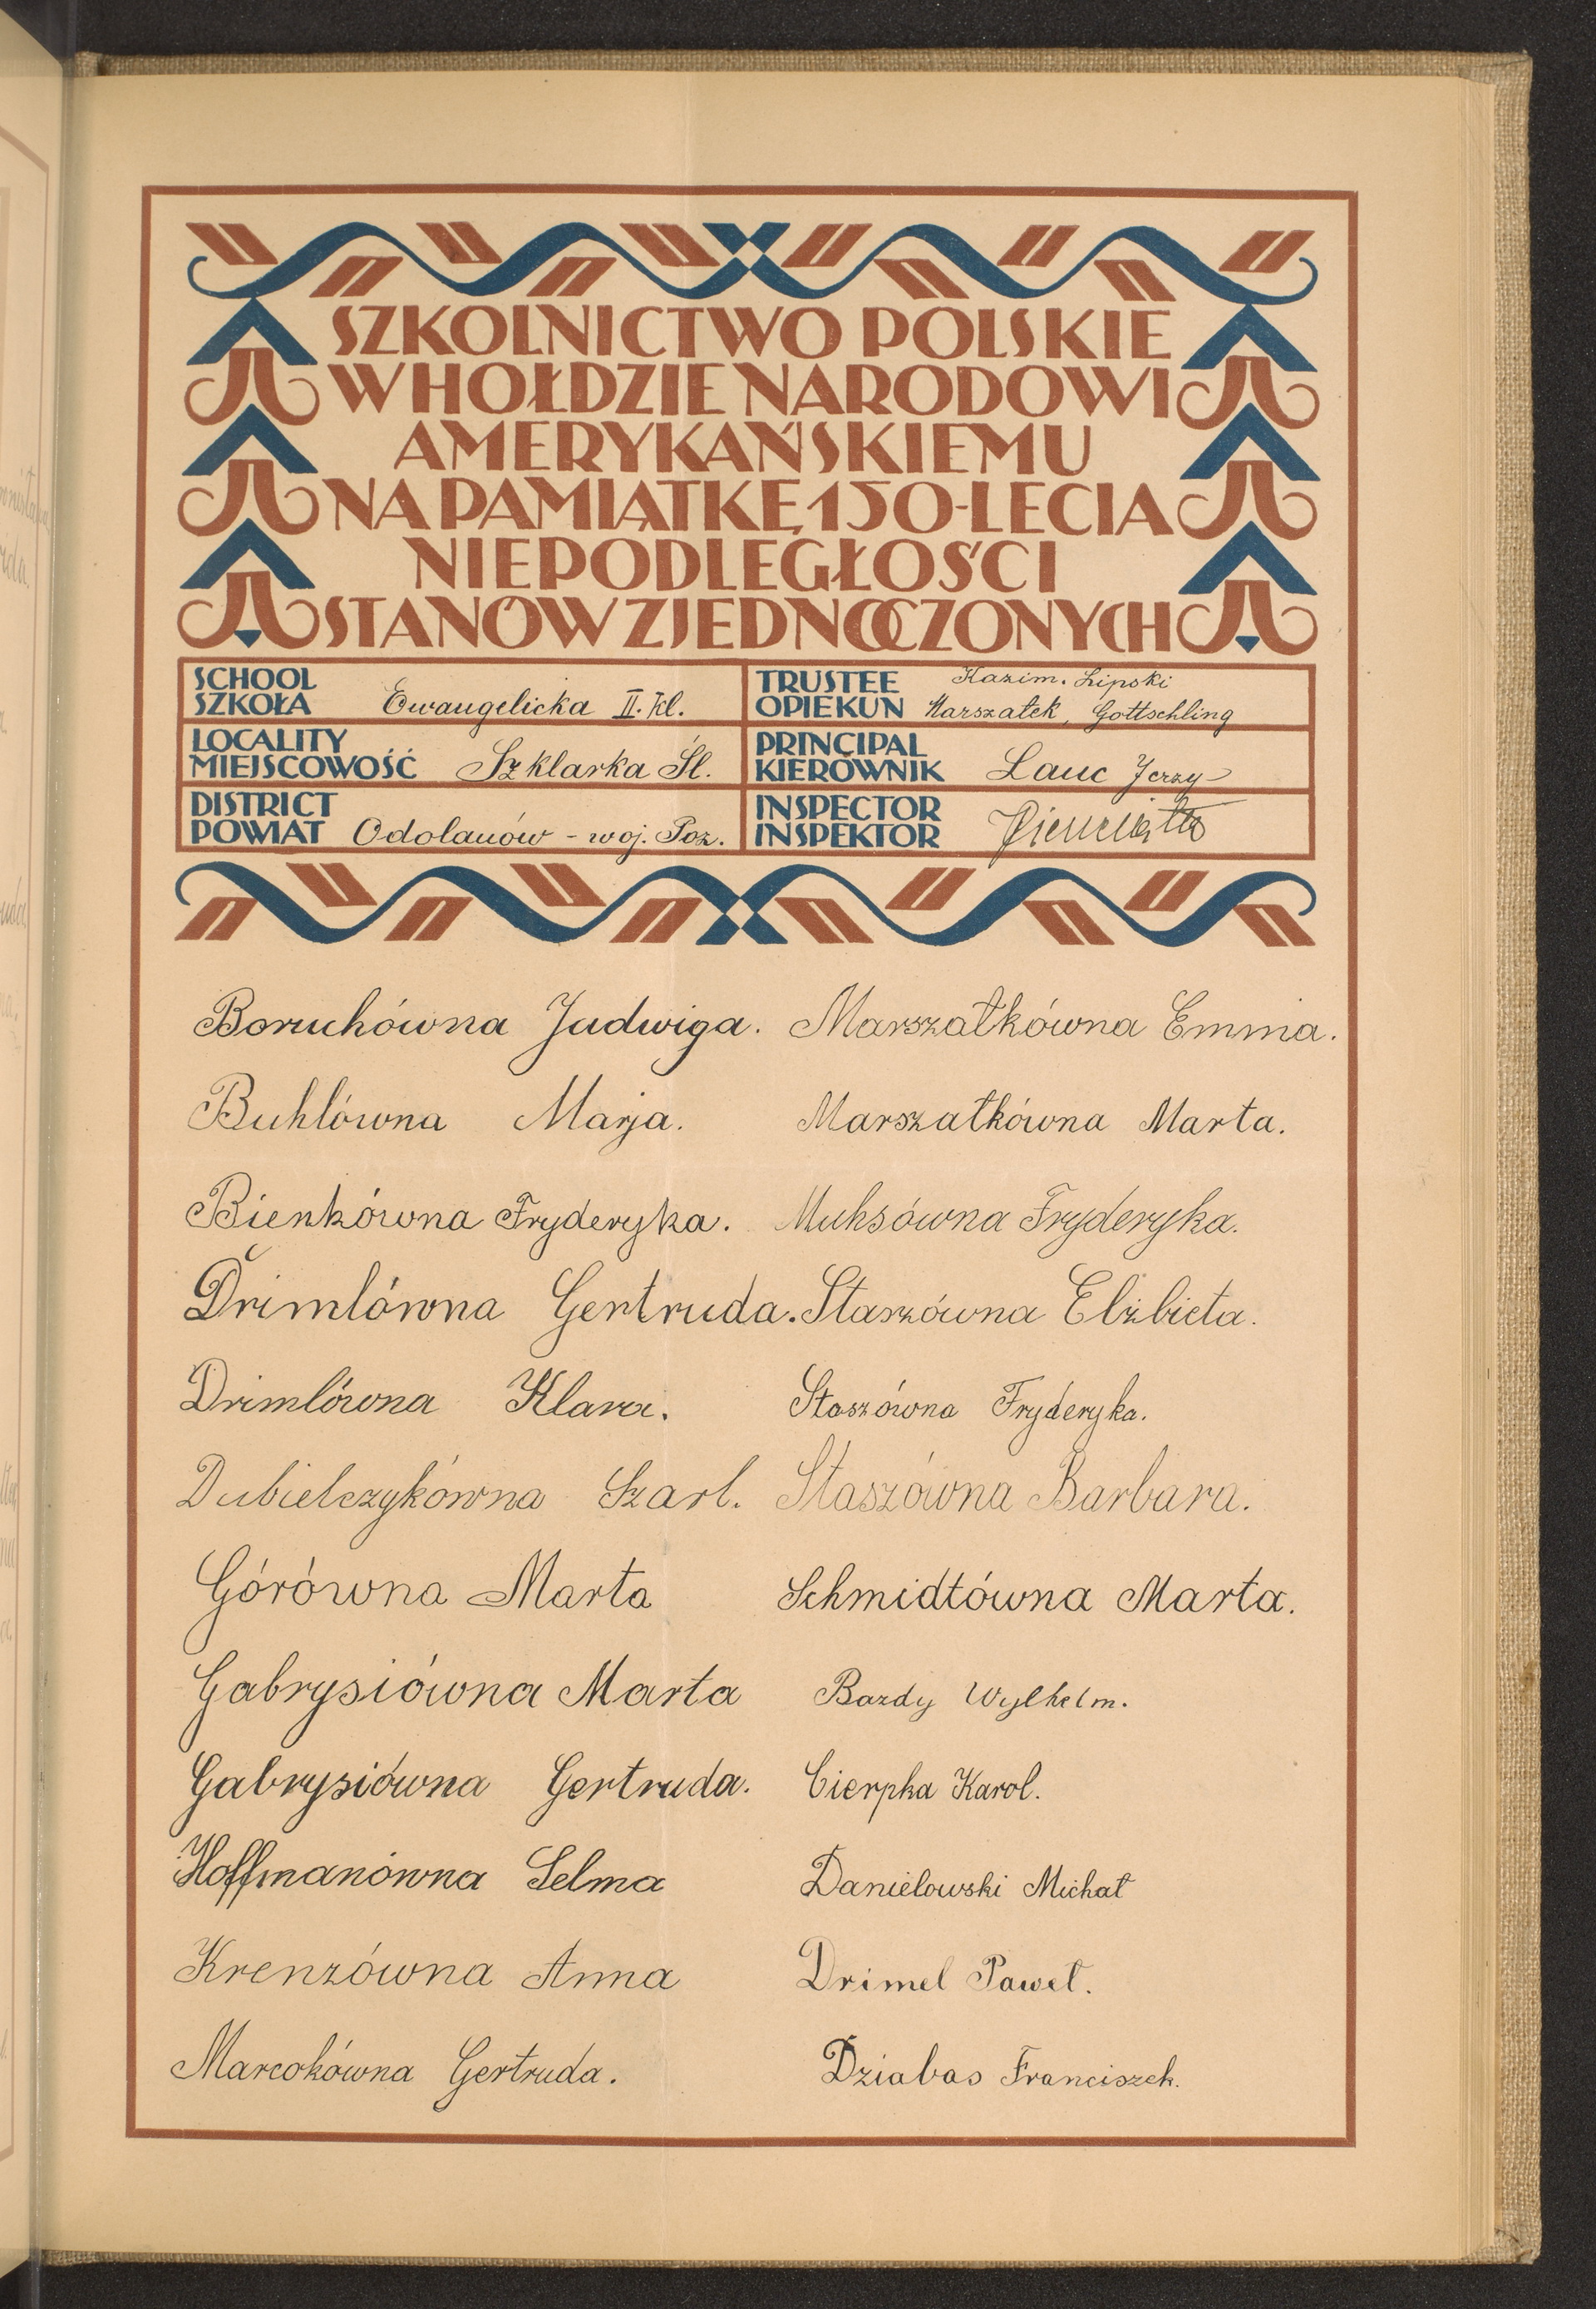 SZKOLNICTWO POLSKIE
W HOŁDZIE NARODOWI
AMERYKAŃSKIEMU
NA PAMIĄTKĘ 150-LECIA
NIEPODLEGŁOŚCI
STANÓW ZJEDNOCZONYCH
SCHOOL
SZKOŁA Ewangelicka II. kl.
TRUSTEE Kazim. Lipski
OPIEKUN Marszałek, Gottschling
LOCALITY
MIEJSCOWOŚĆ Szklarka Śl.
PRINCIPAL
KIEROWNIK Lauc Jerzy
DISTRICT
POWIAT Odolanów - woj. Poz.
INSPECTOR
INSPEKTOR
Boruchówna Jadwiga.
Buhlówna Marja.
Bienkówna Fryderyka.
Drimlówna Gertruda.
Drimlówna Klara.
Dubielczykówna Szarl.
Górówna Marta
Gabrysiówna Marta
Gabrysiówna Gertruda.
Hoffmanówna Selma
Krenzówna Anna
Marcokówna Gertruda.
Marszałkówna Emma.
Marszałkówna Marta.
Muksówna Fryderyka.
Staszówna Elżbieta.
Staszówna Fryderyka.
Staszówna Barbara.
Schmidtówna Marta.
Bardy Wylhelm.
Cierpka Karol.
Danielowski Michał
Drimel Paweł.
Dziabas Franciszek.